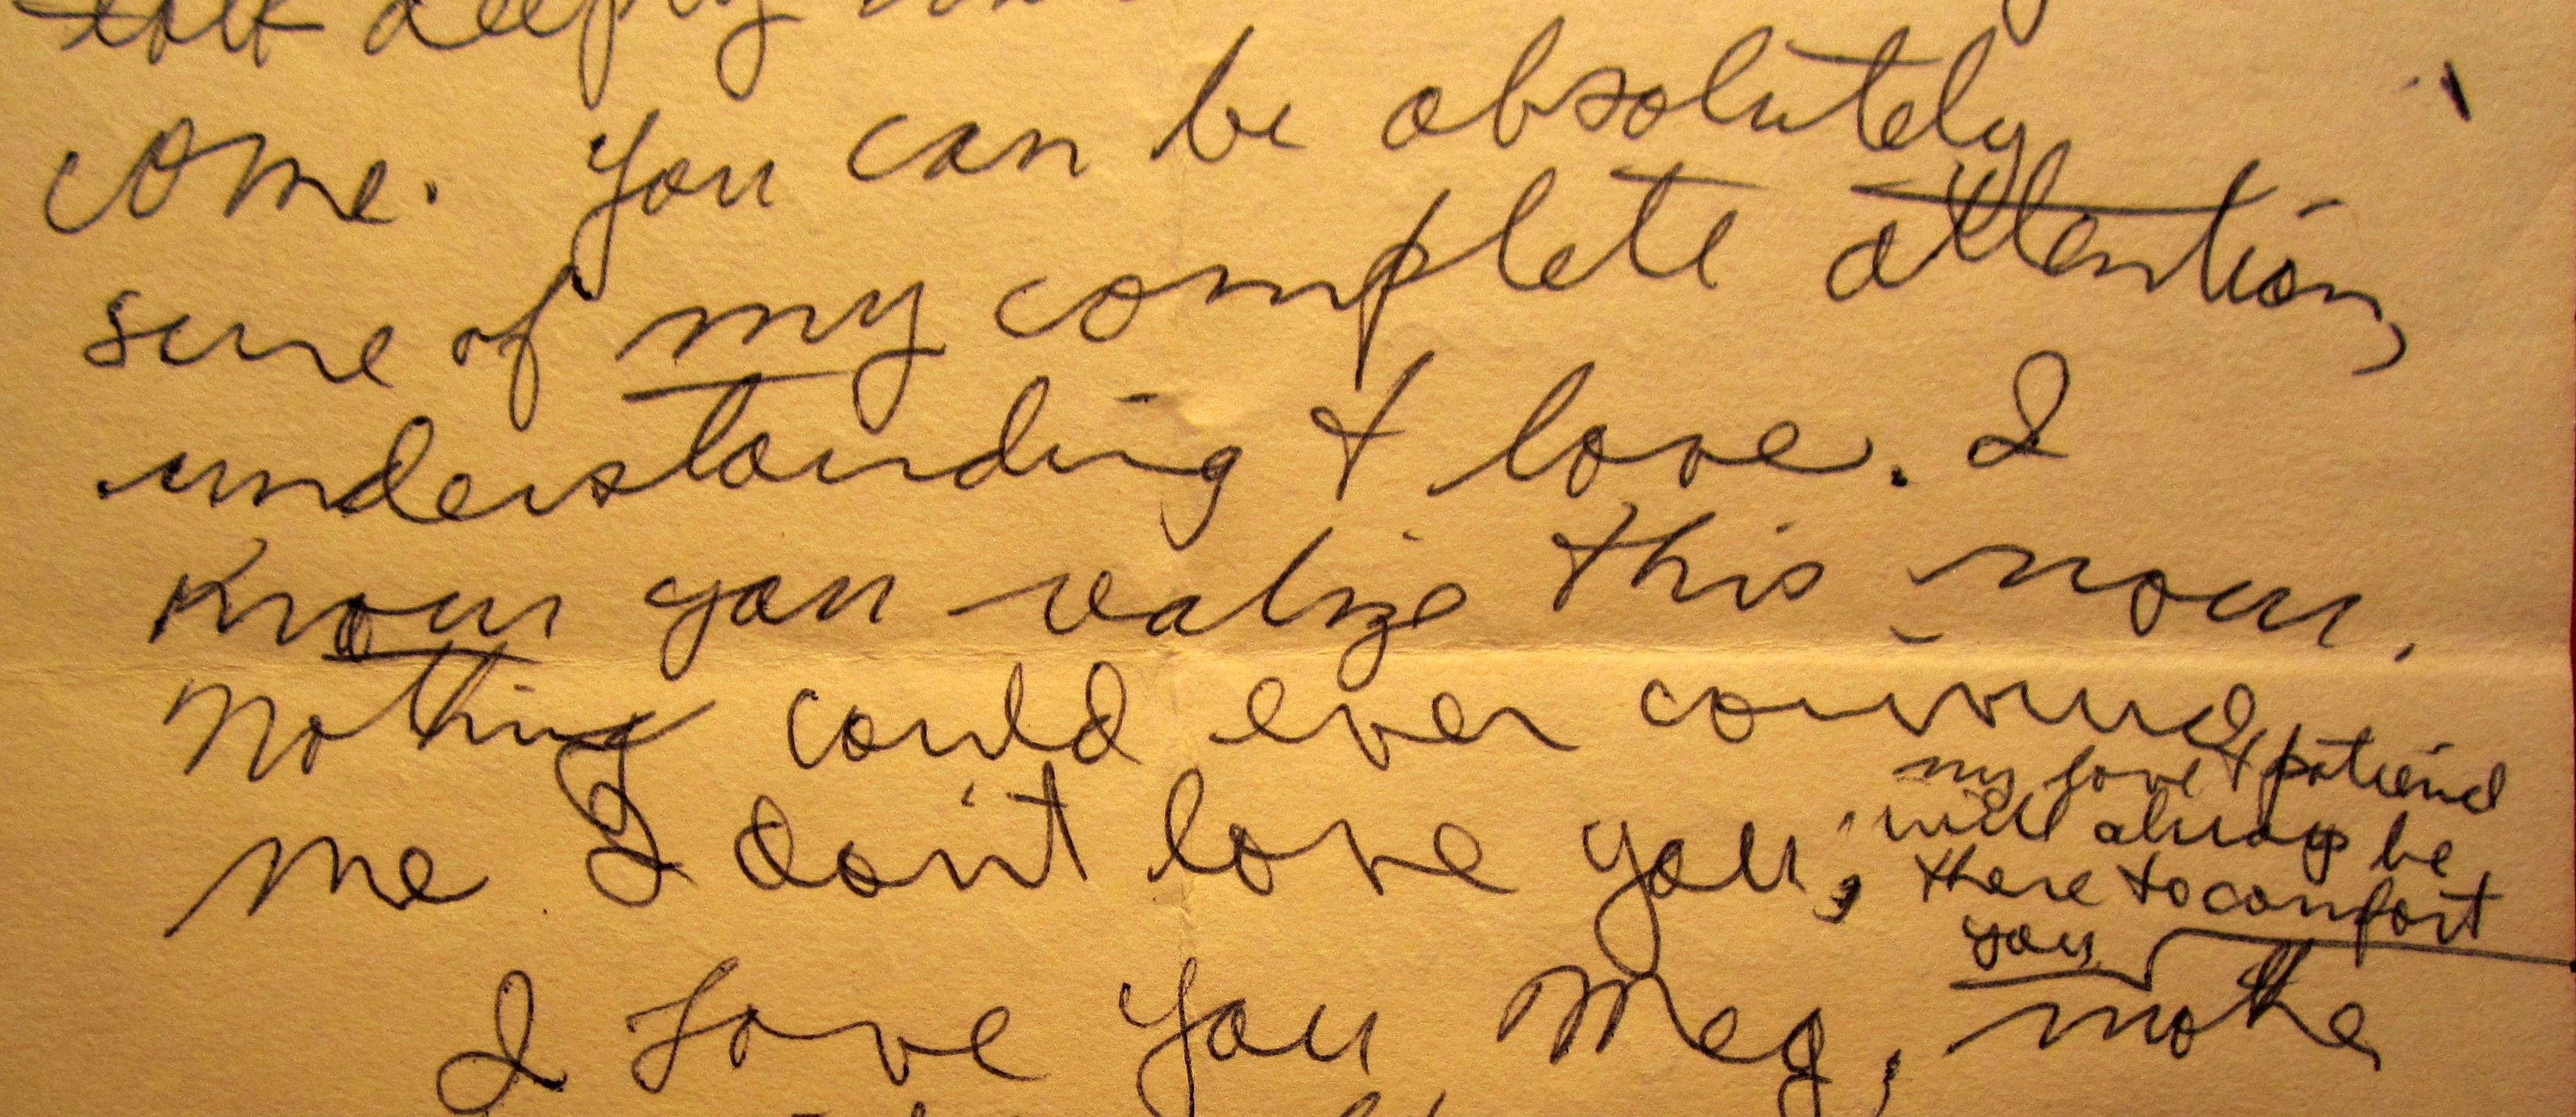 talk deeply
come. You can be absolutely
sure of my complete attention,
understanding & love. I
know you realize this now.
Nothing could ever convince
me I don't love you, my love & patience
will always be
there to comfort
you
I Love You Meg, mothe